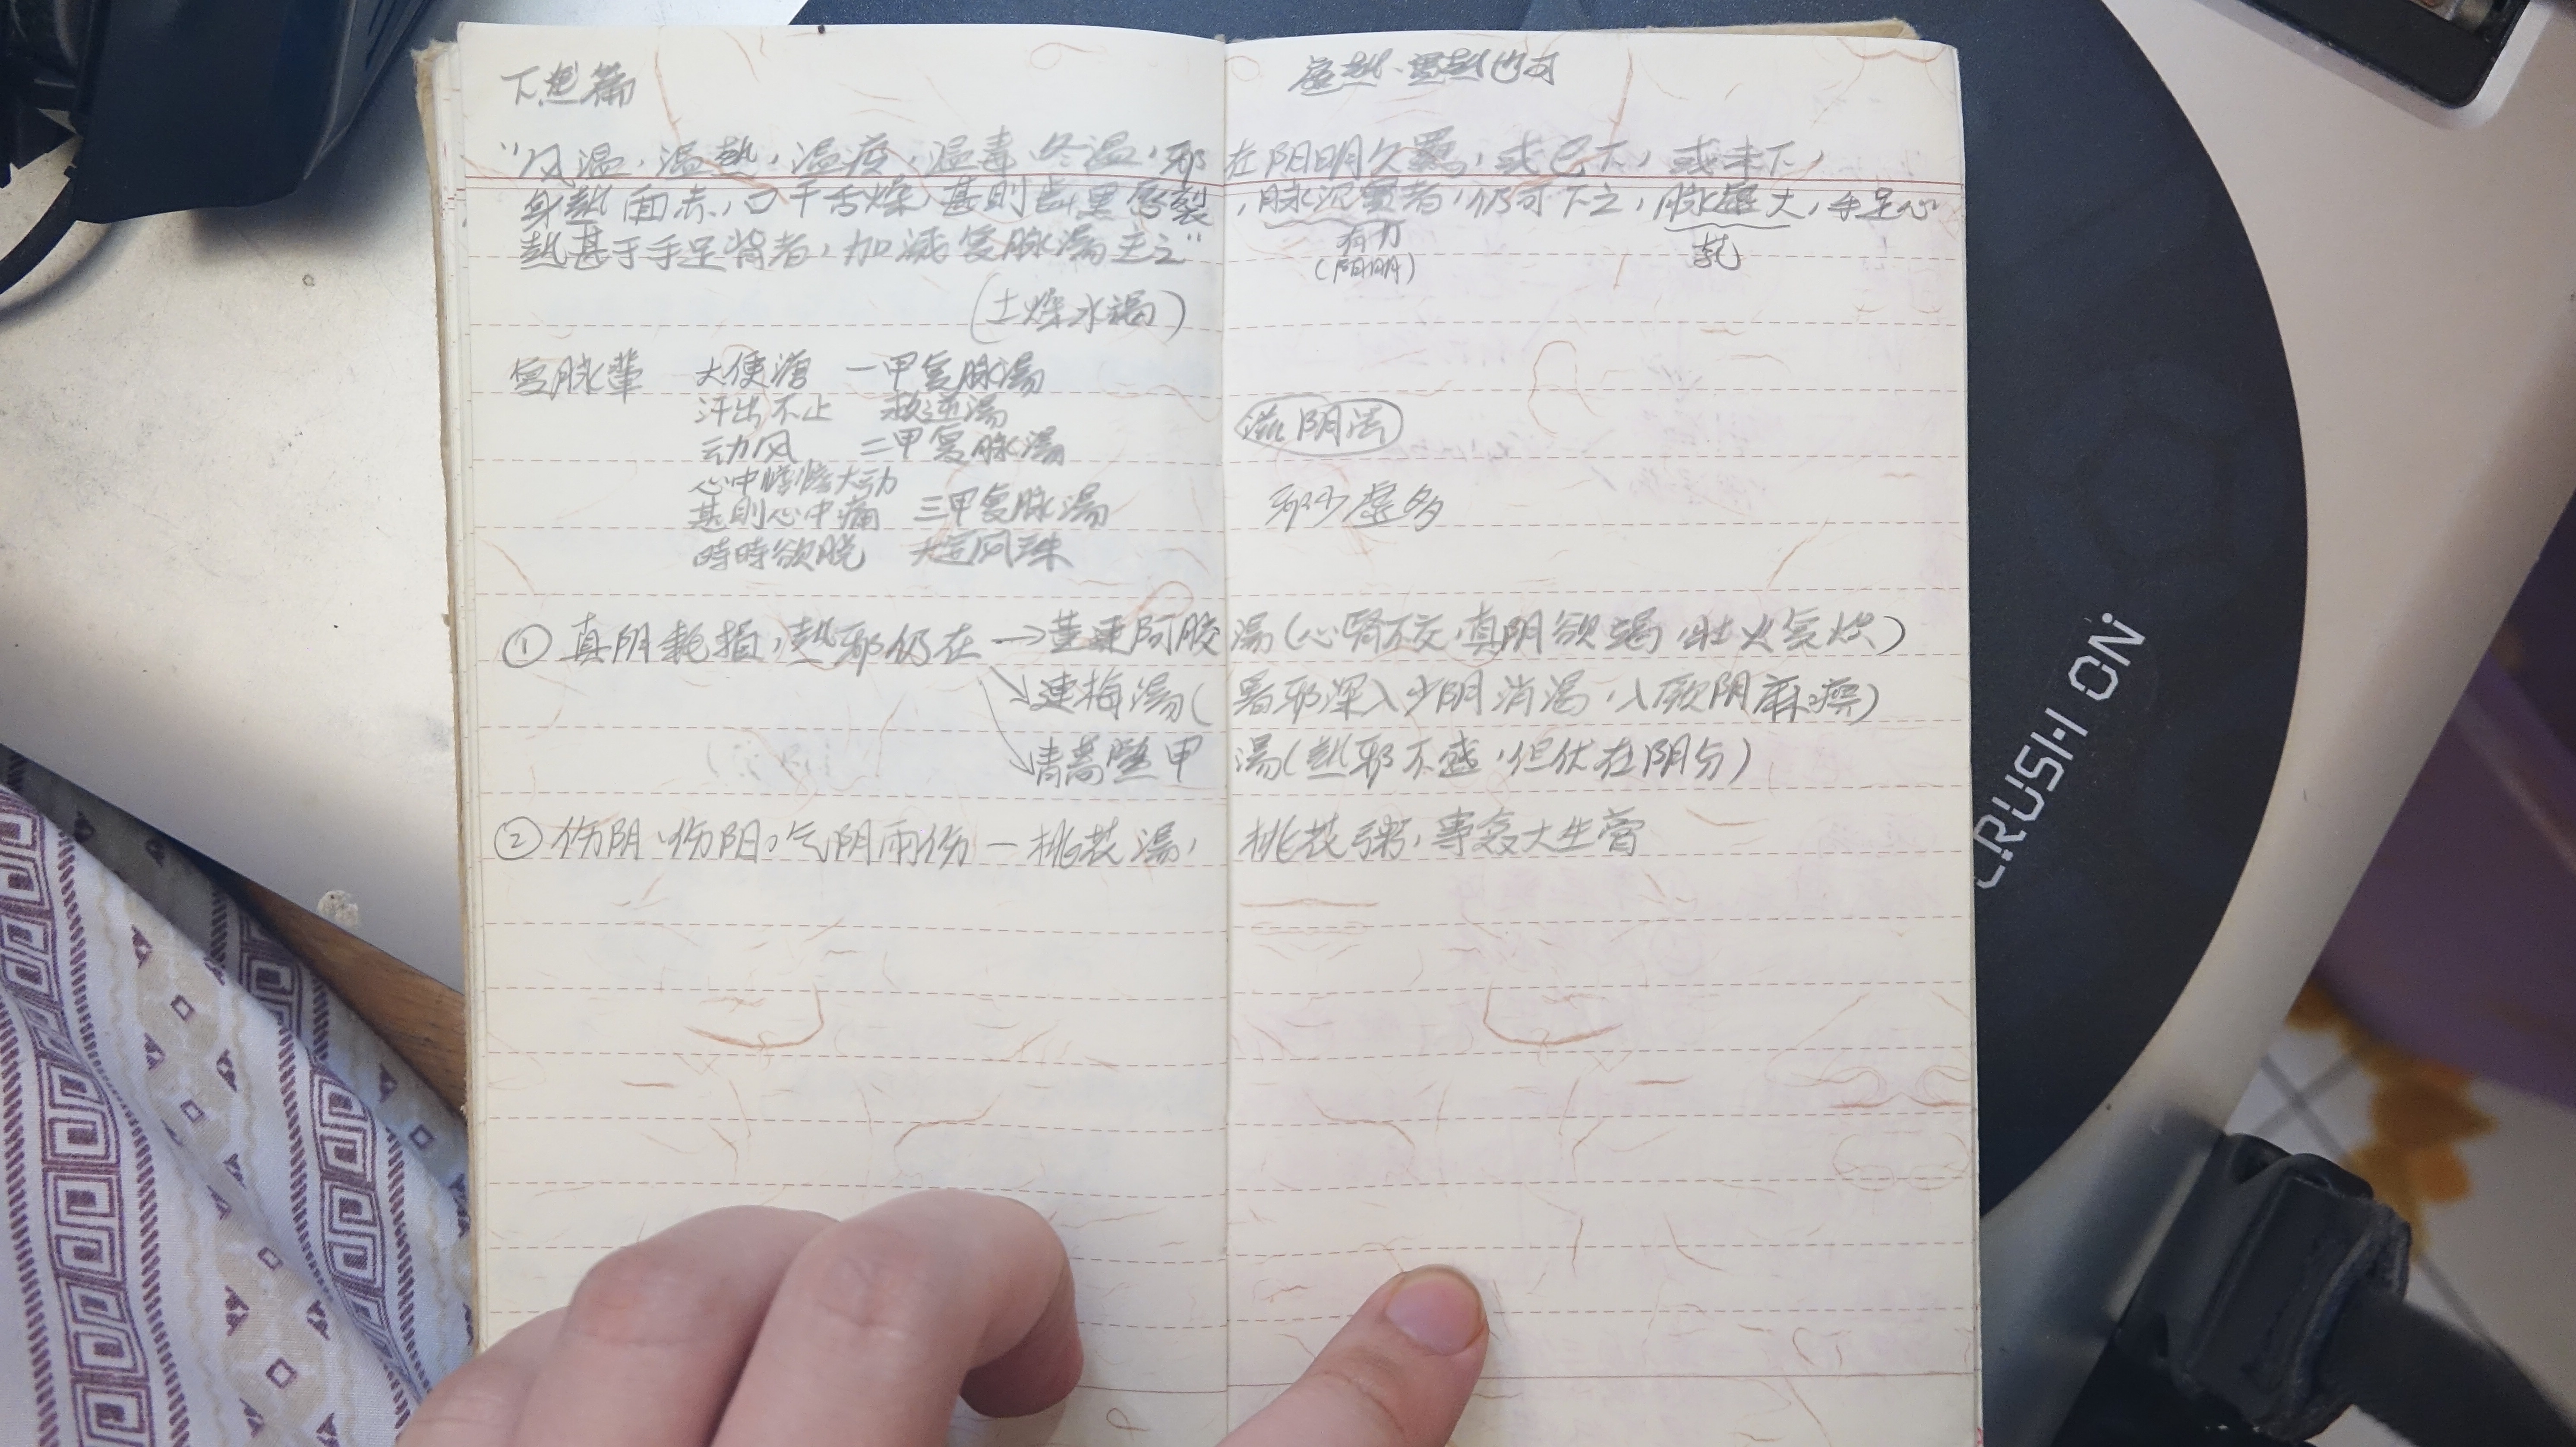 下焦篇
虚热、實热也可
“风温，温热，温疫，温毒，冬温，邪在阳明久羈，或已下，或未下，
身热面赤，口干舌燥，甚則齿黑唇裂，脉沉實者，仍可下之，脉虚大，手足心
热甚于手足背者，加减复脉湯主之”
有力
(阳明)
芤
(土燥水竭)
复脉輩 大便溏 一甲复脉湯
汗出不止 救逆湯
滋阴法
动风 二甲复脉湯
心中憺憺大动
甚則心中痛 三甲复脉湯
邪少虚多
時時欲脱 大定风珠
① 真阴耗损，热邪仍在→黄連阿胶湯(心腎不交，真阴欲竭，壮火复炽)
↘連梅湯(暑邪深入少阴消渴，入厥阴麻痹)
↘青蒿鳖甲湯(热邪不盛，但伏在阴分)
② 伤阴、伤阳。气阴兩伤—桃花湯，桃花粥，專翕大生膏
CRUSH ON